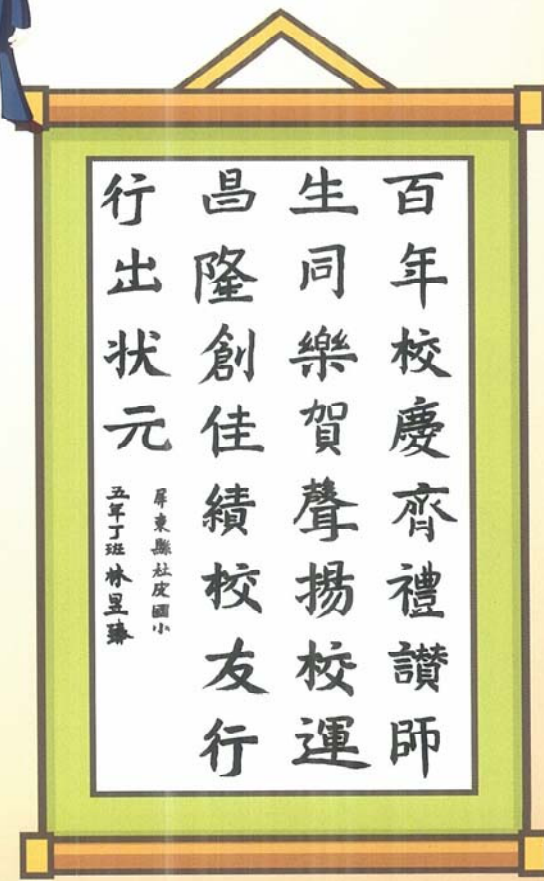 百年校慶齊禮讚師
生同樂賀聲揚校運
昌隆創佳績校友行
行出狀元
屏東縣社皮國小
五年丁班林昱臻